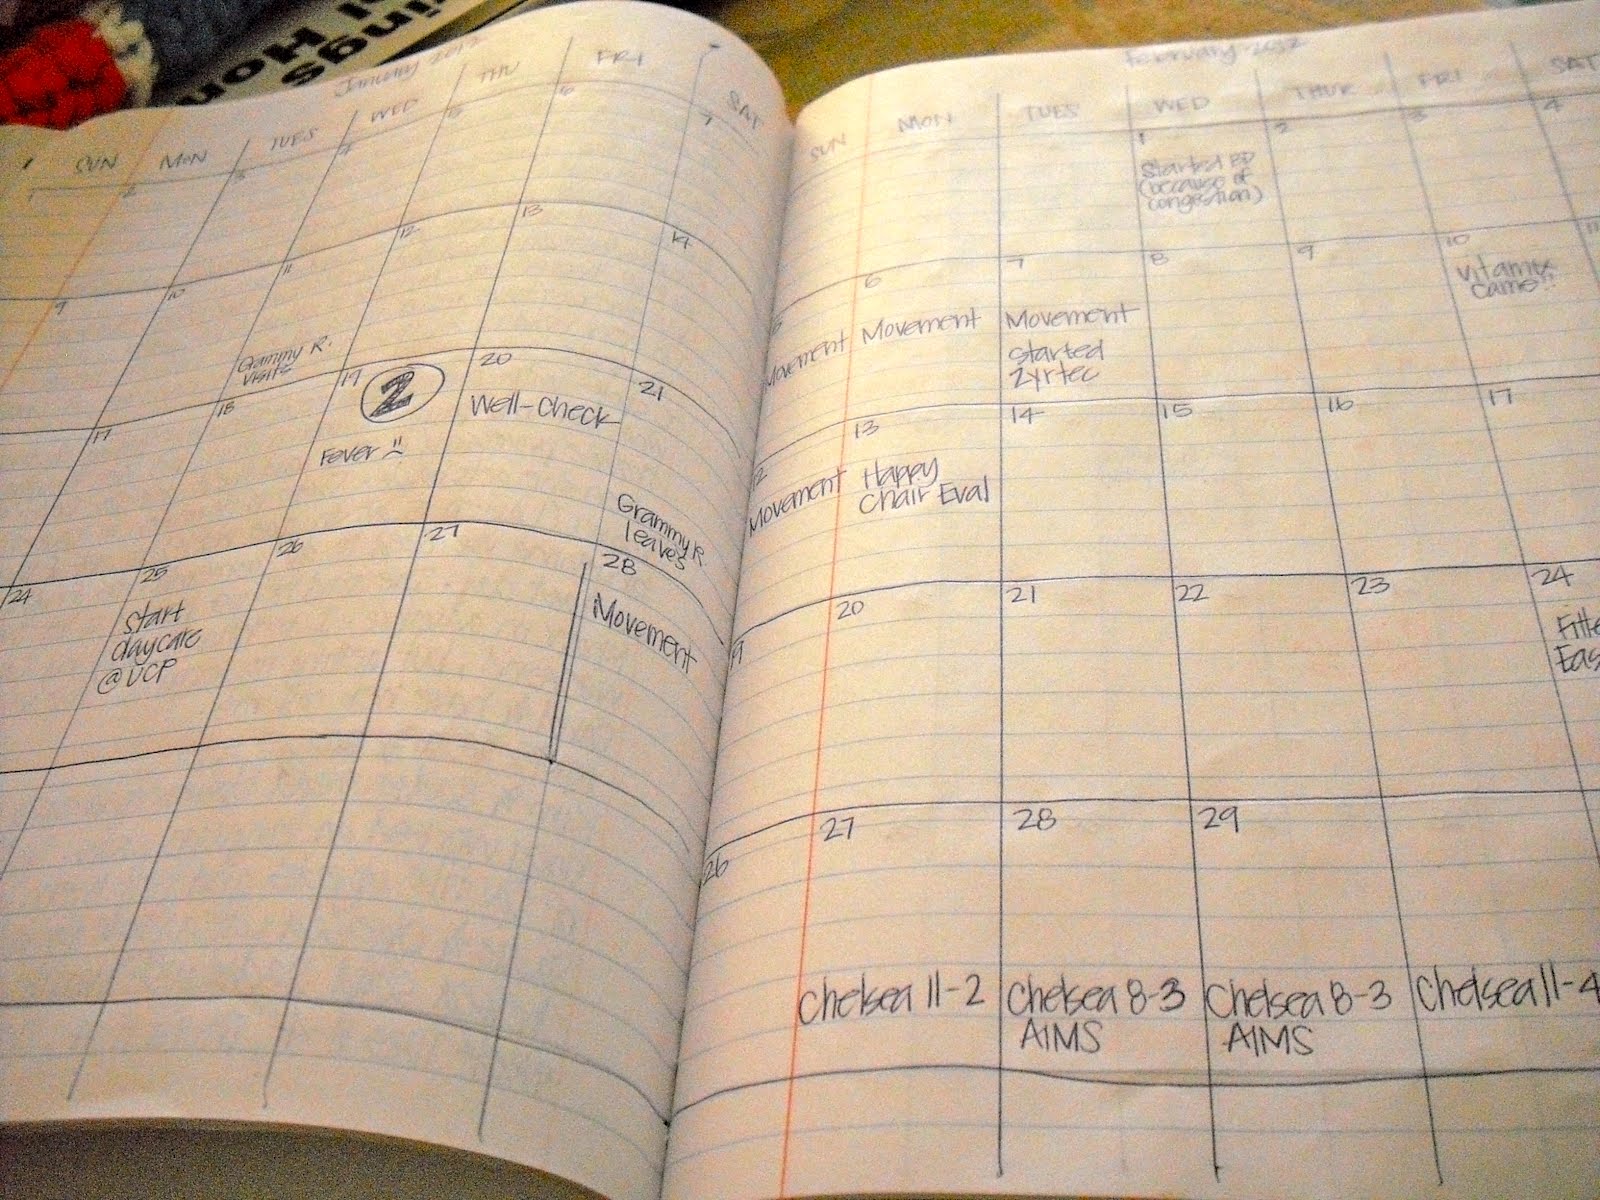 ings
l Hon
January 2012
SUN MON TUES WED THU FRI SAT
1 2 3 4 5 6 7
9 10 11 12 13 14
Grammy R.
visits
17 18 19 2 20 21
Fever
Well-Check
Grammy R
leaves
24 25 26 27 28
Start
daycare
@ UCP
Movement
February 2012
SUN MON TUES WED THUR FRI SAT
1 2 3 4
Started BD
(because of
congestion)
5 6 7 8 9 10 11
Movement Movement Movement
Started
Zyrtec
Vitamix
came!!
12 13 14 15 16 17
Movement Happy
Chair Eval
19 20 21 22 23 24
26 27 28 29
Chelsea 11-2 Chelsea 8-3 Chelsea 8-3 Chelsea 11-4
AIMS AIMS